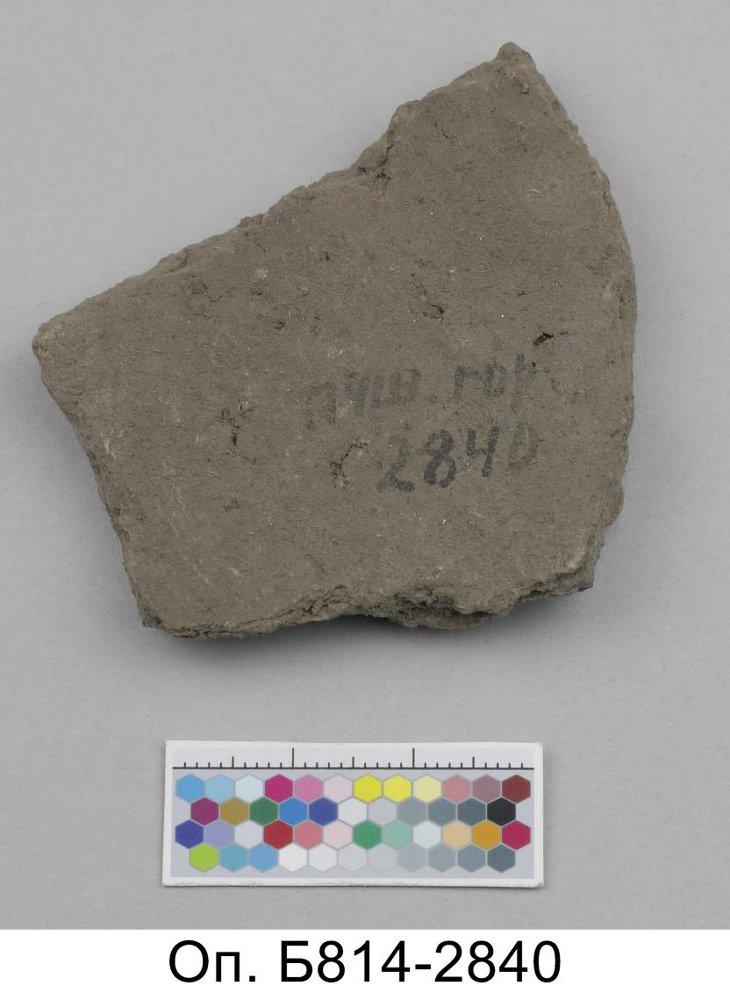 Пуш. гор
2840
Оп. Б814-2840